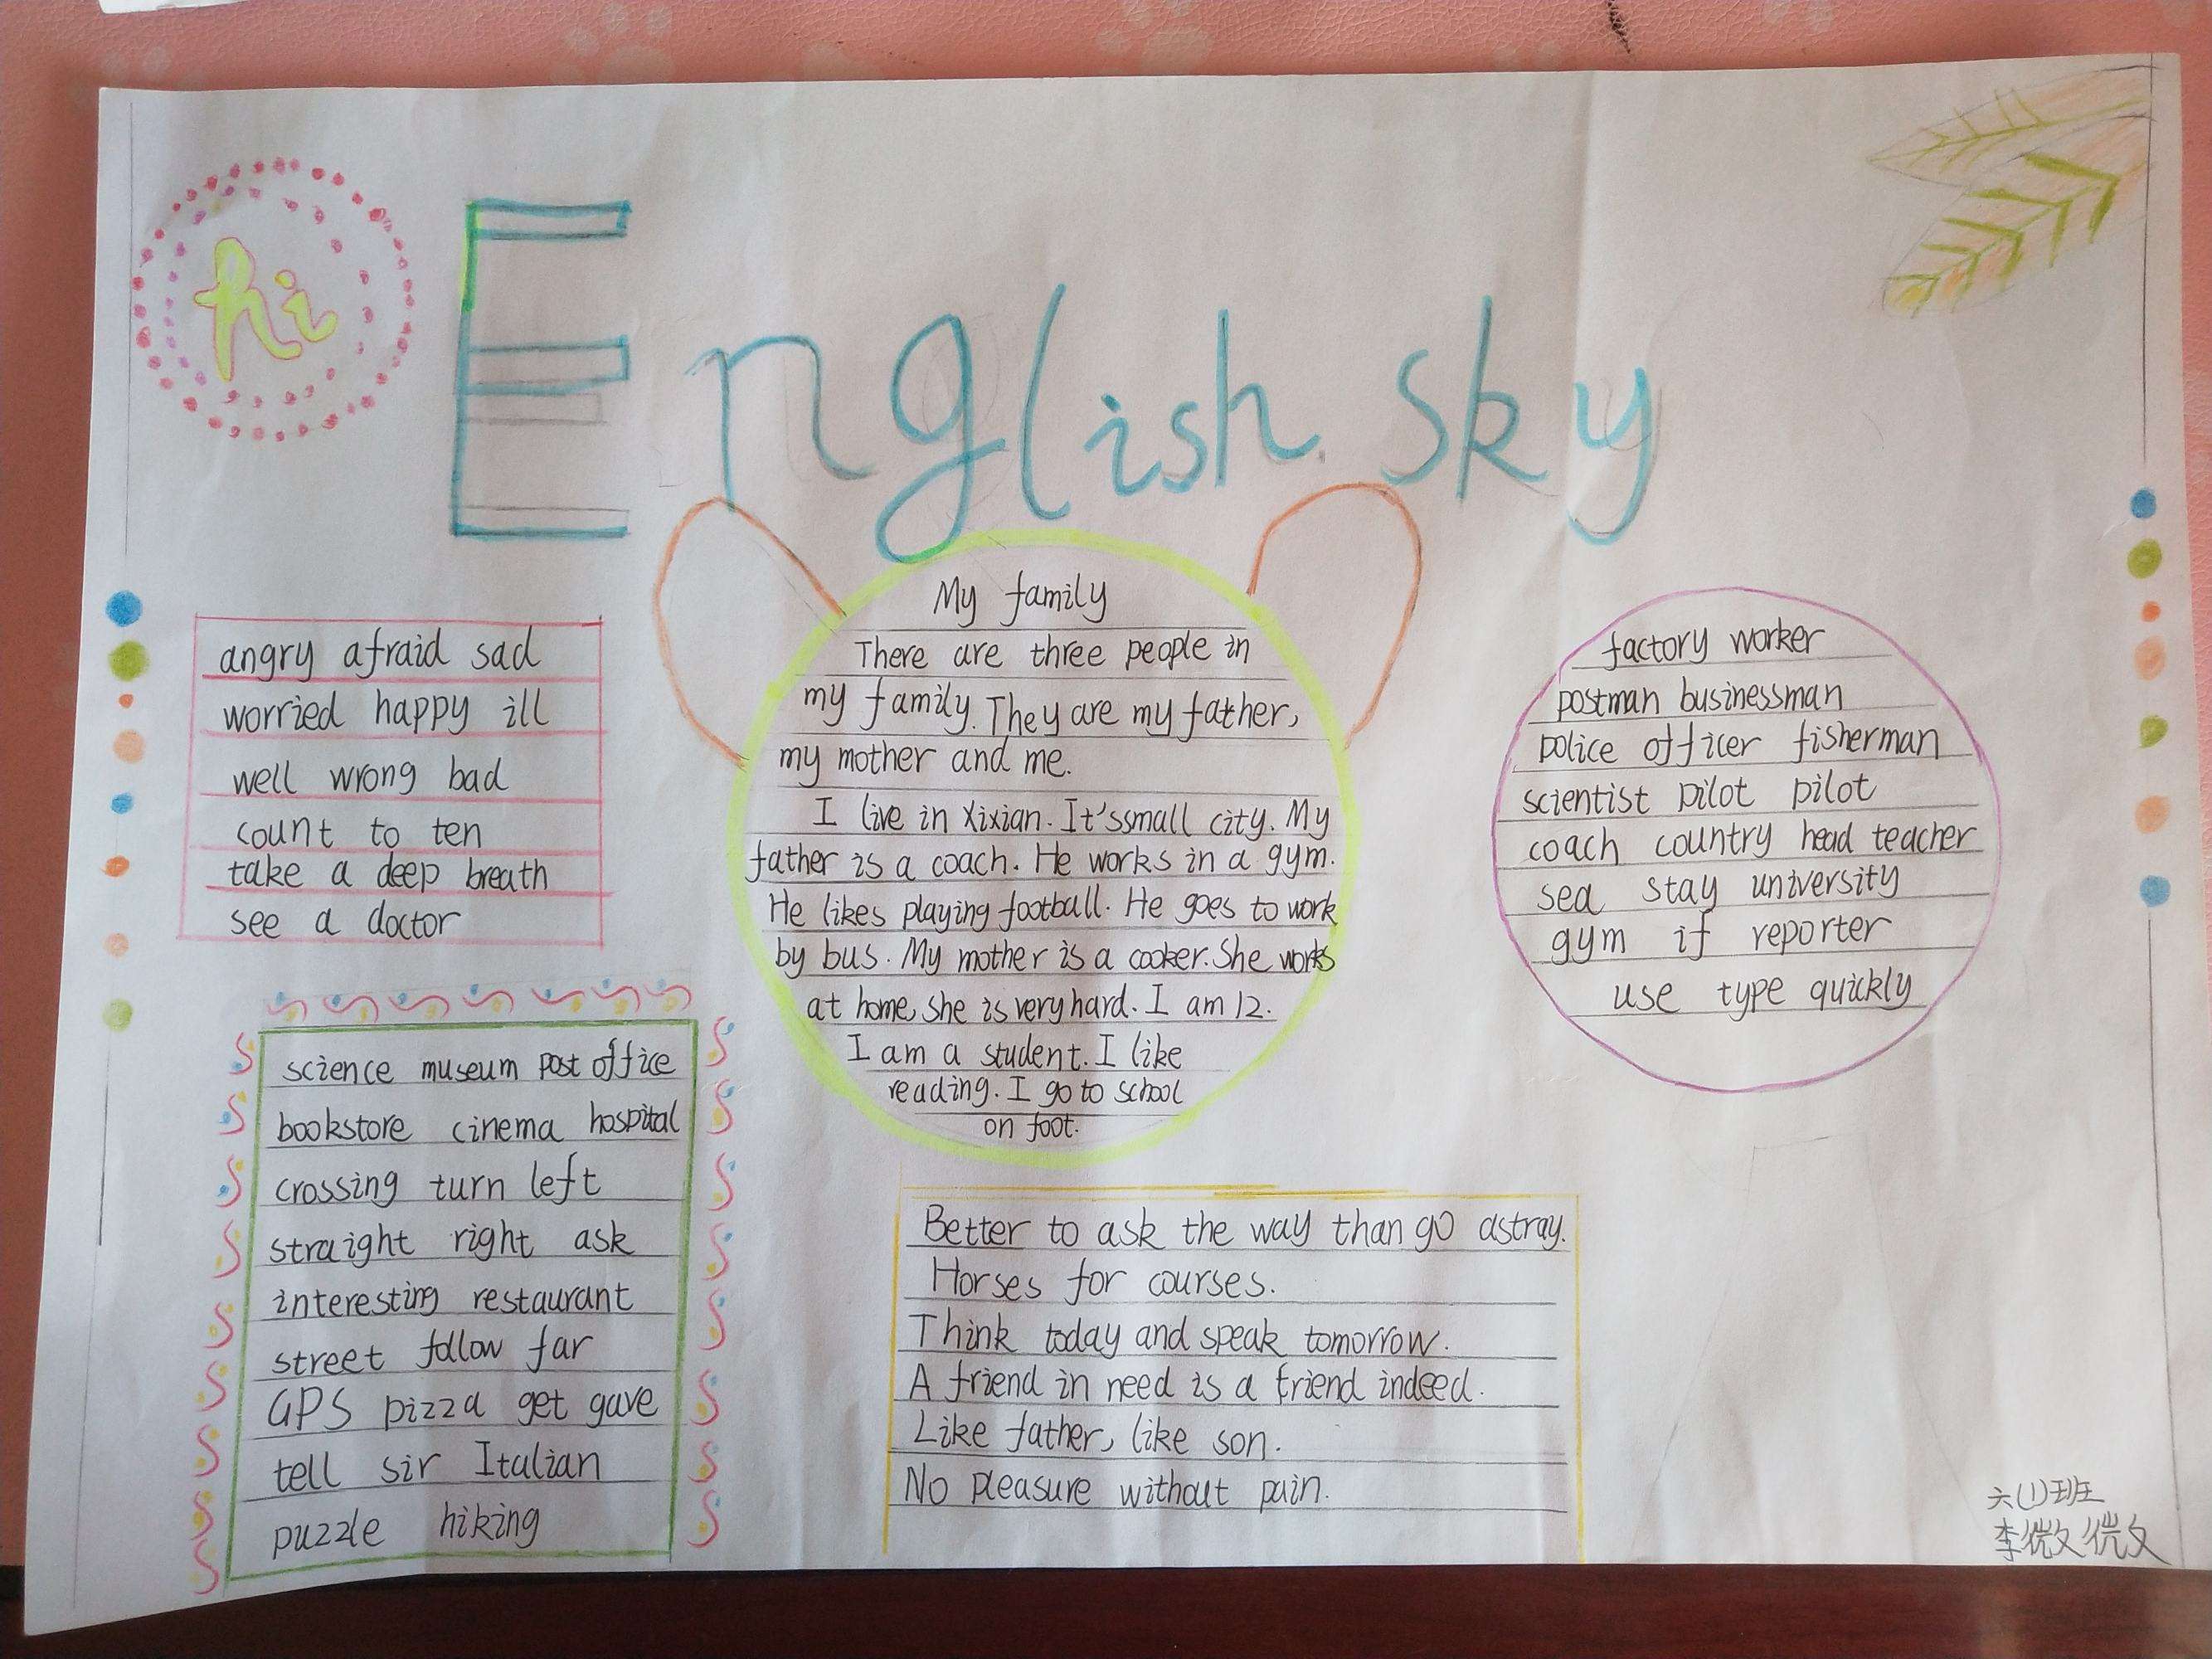 hi
English sky
angry afraid sad
worried happy ill
well wrong bad
count to ten
take a deep breath
see a doctor
science museum post office
bookstore cinema hospital
crossing turn left
straight right ask
interesting restaurant
street follow far
GPS pizza get gave
tell sir Italian
puzzle hiking
My family
There are three people in
my family. They are my father,
my mother and me.
I live in Xixian. It'ssmall city. My
father is a coach. He works in a gym.
He likes playing football. He goes to work
by bus. My mother is a cooker. She works
at home, she is very hard. I am 12.
I am a student. I like
reading. I go to school
on foot.
factory worker
postman businessman
police officer fisherman
scientist pilot pilot
coach country head teacher
sea stay university
gym if reporter
use type quickly
Better to ask the way than go astray.
Horses for courses.
Think today and speak tomorrow.
A friend in need is a friend indeed.
Like father, like son.
No pleasure without pain.
六(1)班
李微微